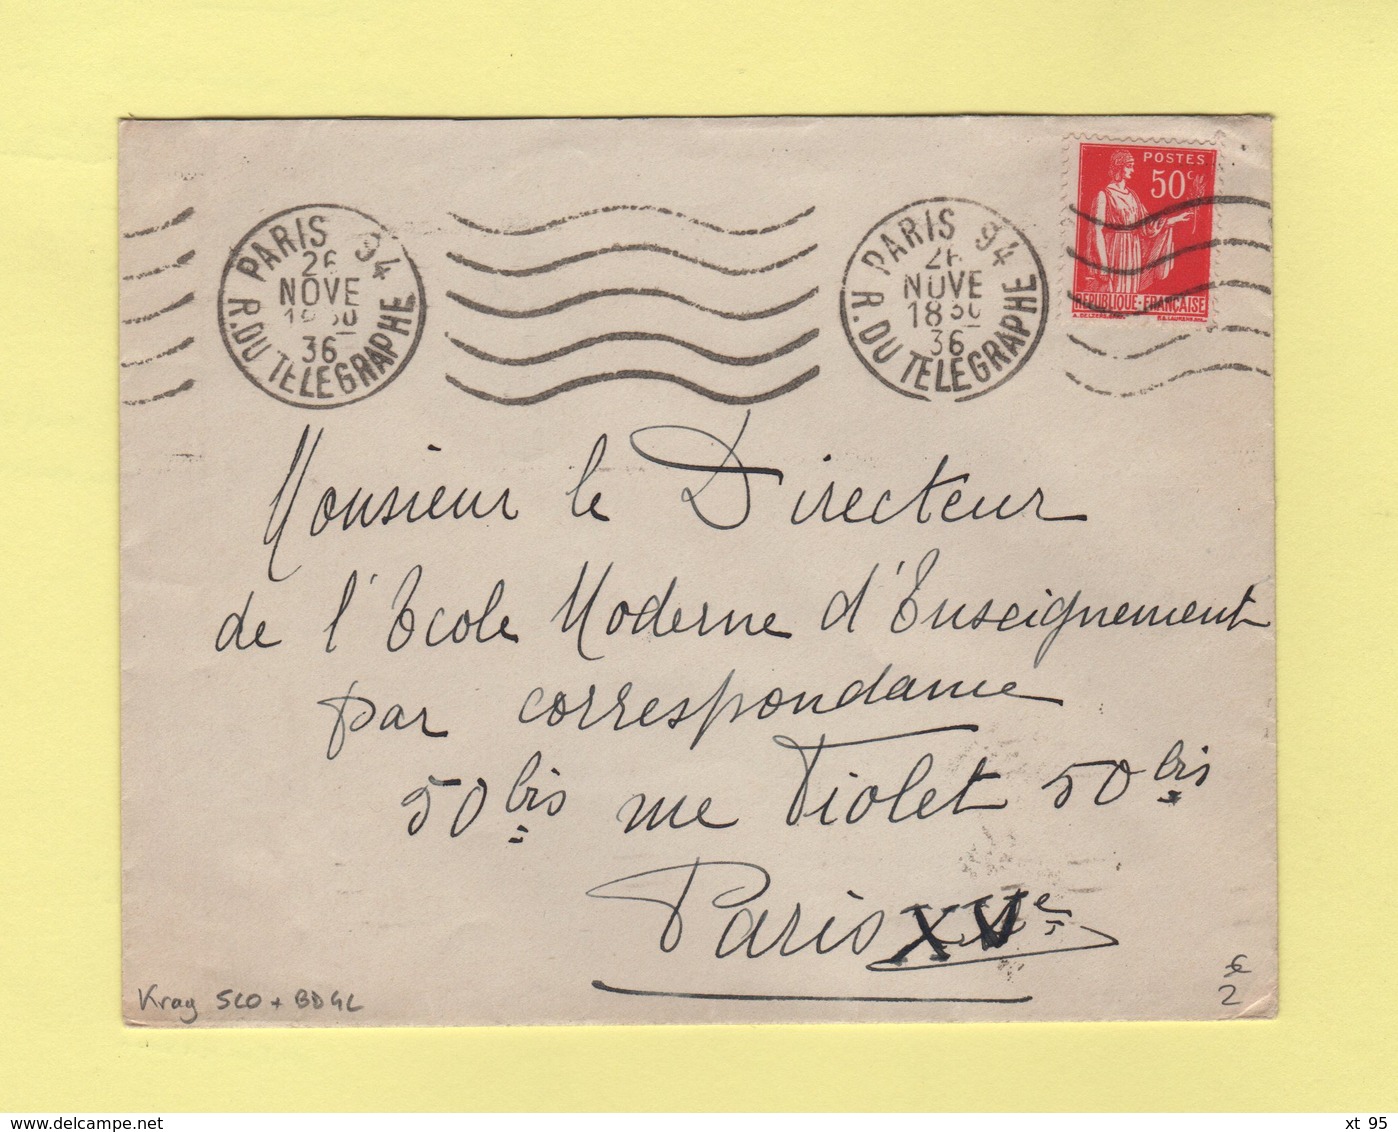 PARIS 94
26
NOVE
1830
36
R. DU TELEGRAPHE
PARIS 94
26
NOVE
1830
36
R. DU TELEGRAPHE
POSTES
50c
REPUBLIQUE-FRANÇAISE
Monsieur le Directeur
de l'Ecole Moderne d'Enseignement
par correspondance
50 bis rue Violet 50 bis
Paris XVe
Krag SLO + BDGL
€
2
www.delcampe.net
xt 95